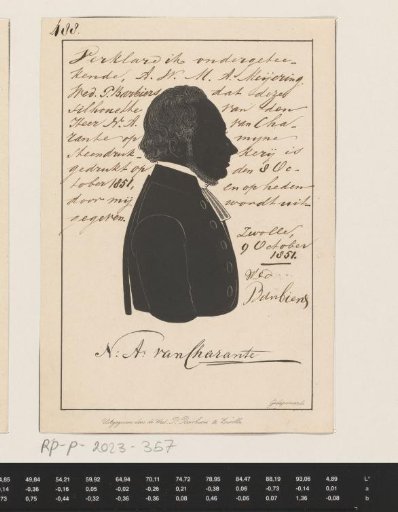 488.
Verklaard ik ondergetee-
kende, A. W. M. A. Meijering
Wed. P. Barbiers dat deze
silhouette van den
Heer N. A. van Cha-
rante op mijne
Steendruk- kerij is
gedrukt op den 8 Oc-
tober 1851, en op heden
door mij wordt uit-
gegeven.
Zwolle,
9 October
1851.
Wed
Barbiers
N. A. van Charante
Uitgegeven door de Wed. P. Barbiers te Zwolle.
RP-P-2023-357
49,64 54,21 59,92 64,94 70,11 74,72 78,95 84,47 88,19 93,06 4,89 L*
-0,16 0,16 0,05 -0,02 -0,26 0,21 -0,38 0,06 -0,73 -0,14 0,01 a
0,75 -0,44 -0,32 -0,36 -0,36 0,08 0,46 -0,06 0,07 1,36 -0,08 b